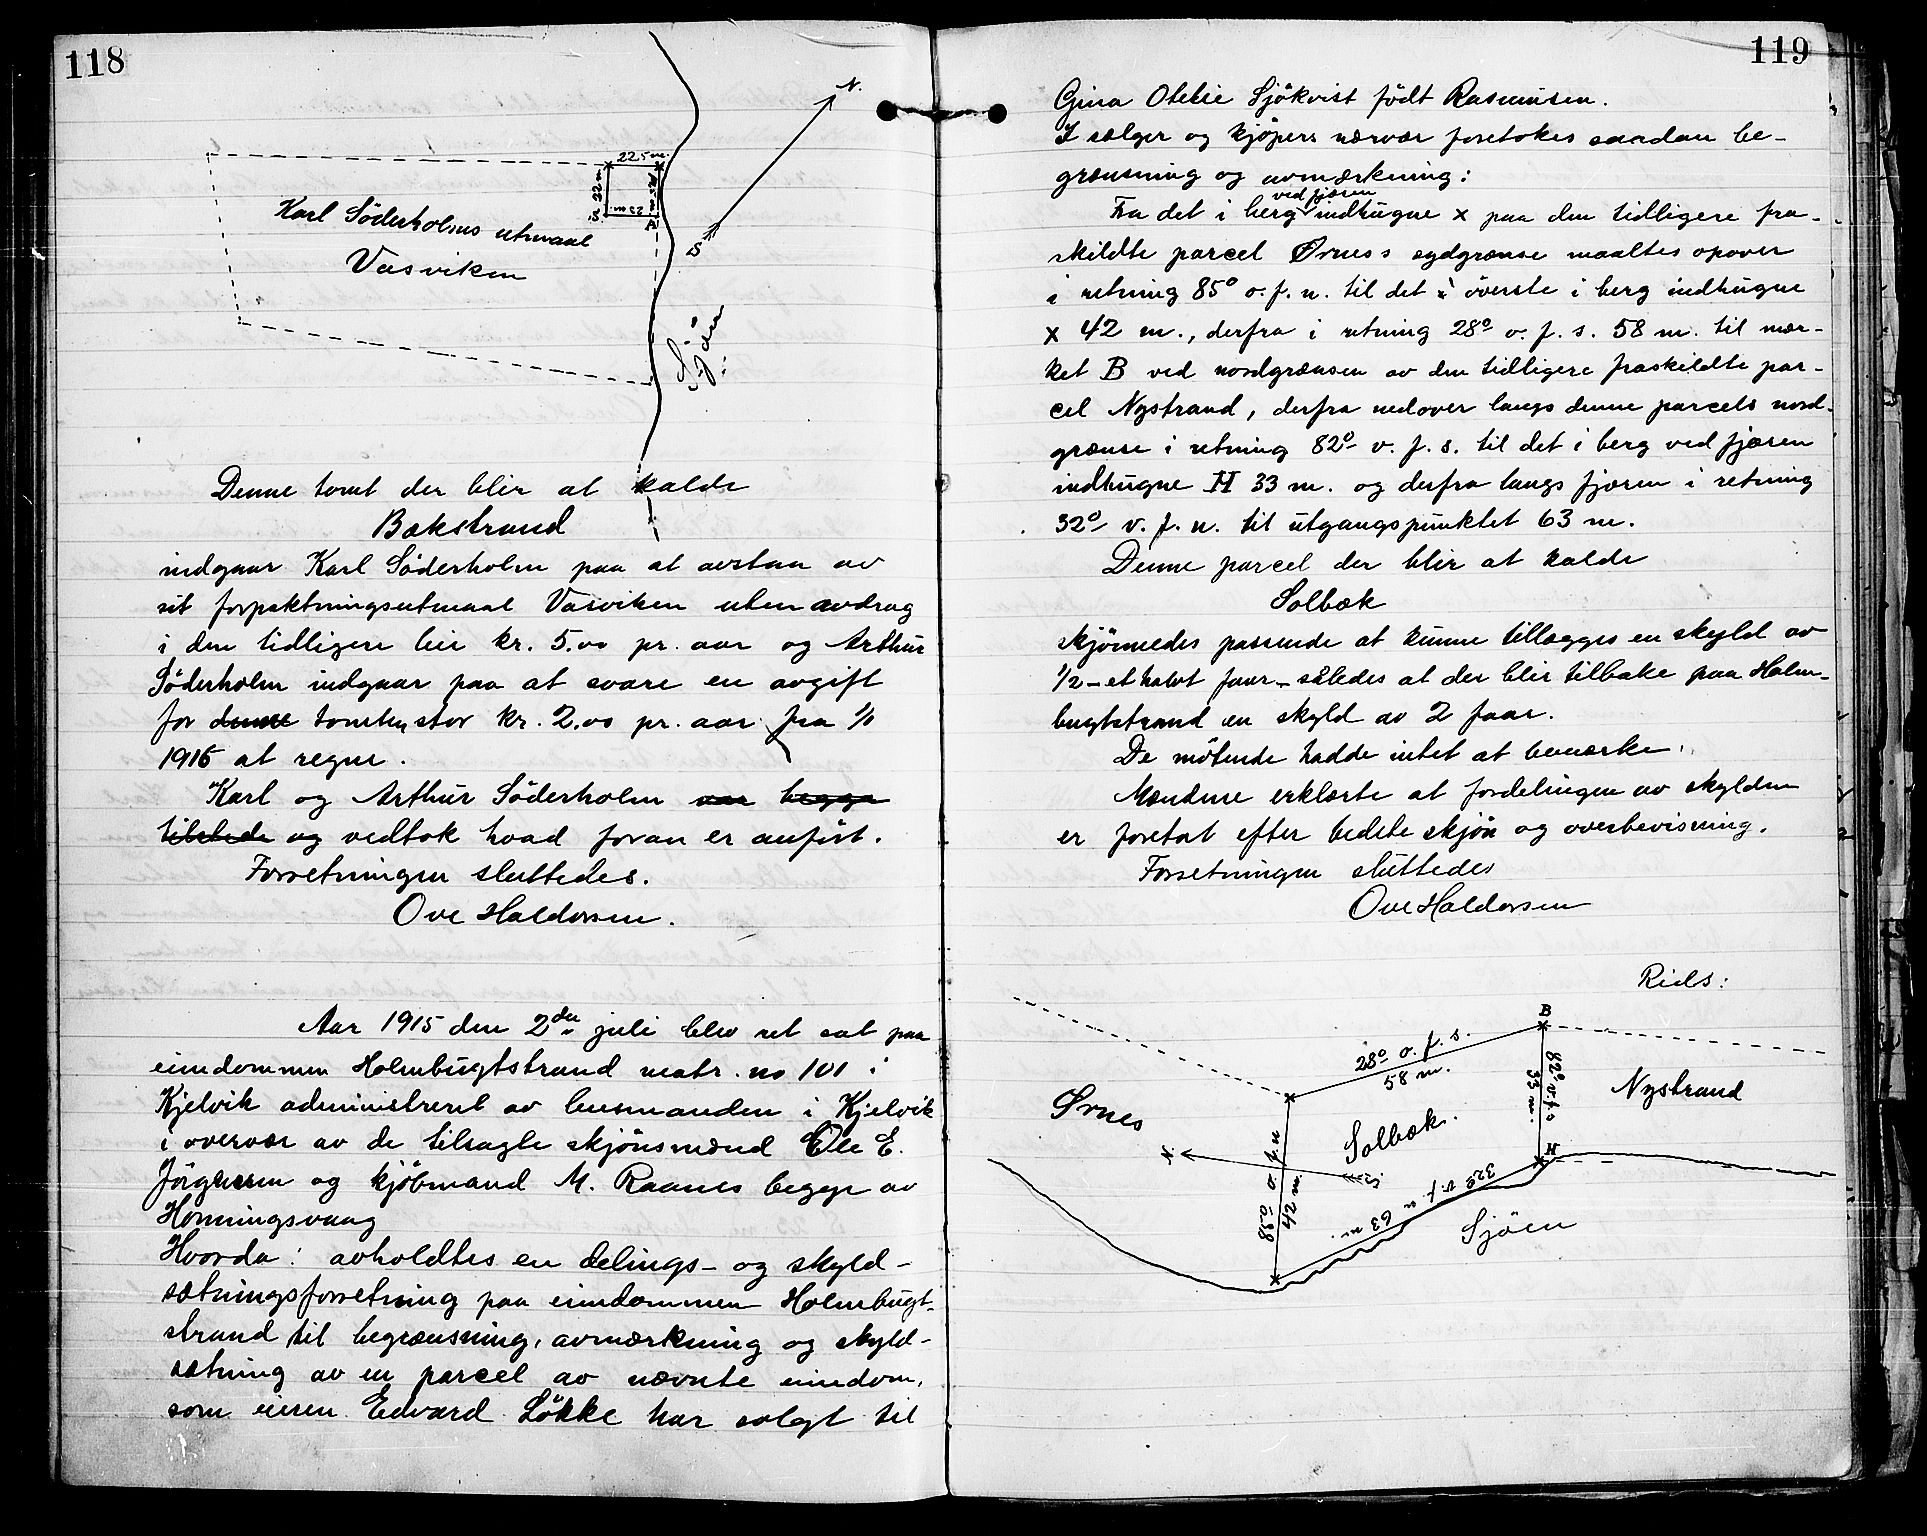 118
N.
22.5 m.
22 m.
23 m.
Karl Söderholms utmaal
Vasviken
S
Sjöen
Denne tomt der blir at kalde
Bækstrand
indgaar Karl Söderholm paa at avstaa av
sit forpaktningsutmaal Vasviken uten avdrag
i den tidligere leie kr. 5.00 pr. aar og Arthur
Söderholm indgaar paa at svare en avgift
for denne tomten stor kr. 2.00 pr. aar fra 1/1
1916 at regne.
Karl og Arthur Söderholm var begge
tilstede og vedtok hvad foran er anført.
Forretningen sluttedes.
Ove Haldorsen.
Aar 1915 den 2den juli blev ret sat paa
eiendommen Holmbugtstrand matr. no 101 i
Kjelvik administreret av lensmanden i Kjelvik
i overvær av de tilsagte skjönsmænd Ole E.
Jörgensen og kjöbmand M. Raanes begge av
Honningsvaag
Hvorda: avholdtes en delings- og skyld-
sætningsforretning paa eiendommen Holmbugt-
strand til begrænsning, avmærkning og skyld-
sætning av en parcel av nævnte eiendom,
som eieren Edvard Lökke har solgt til
119
Gina Otelie Sjökvist födt Rasmusen.
I sælger og kjøpers nærvær foretokes saadan be-
grænsning og avmærkning:
Fra det i berg ved fjæren indhugne x paa den tidligere fra-
skildte parcel Ørnes's sydgrænse maaltes opover
i retning 85° o. f. n. til det i överste i berg indhugne
x 42 m., derfra i retning 28° o. f. s. 58 m. til mær-
ket B ved nordgrænsen av den tidligere fraskildte par-
cel Nystrand, derfra nedover langs denne parcels nord-
grænse i retning 82° v. f. s. til det i berg ved fjæren
indhugne H 33 m. og derfra langs fjæren i retning
32° v. f. n. til utgangspunktet 63 m.
Denne parcel der blir at kalde
Solbæk
skjönnedes passende at kunne tillægges en skyld av
1/2 - et halvt faar - således at der blir tilbake paa Holm-
bugtstrand en skyld av 2 faar.
De mötende hadde intet at bemærke.
Mændene erklærte at fordelingen av skylden
er foretat efter bedste skjön og overbevisning.
Forretningen sluttedes
Ove Haldorsen
Rids:
B
28° o. f. s.
58 m.
82° v. f. s
33 m.
Nystrand
Ørnes
Solbæk.
N.
S.
85° o. f. n
42 m.
H
32° v. f. n 63 m.
Sjöen